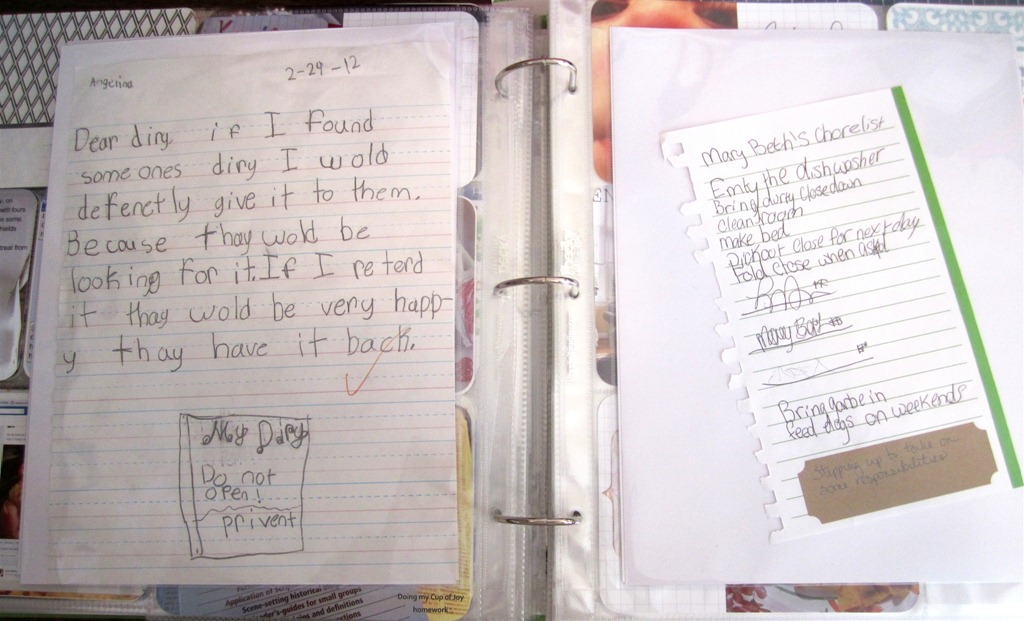 Angelina
2-29-12
Dear diry, if I found
someones diry I wold
defenetly give it to them.
Because thay wold be
looking for it. If I reterd
it thay wold be very happ-
y thay have it back.
My Diry
Do not
open!
privent
Mary Beth's chorelist
Emty the dishwasher
Bring durty close down
clean room
make bed
Pick out close for next day
fold close when asked
Mary Beth
Bring garbe in
feed dogs on weekends
Stepping up to take on
some responsibilities
Application of Scrip
Scene-setting historical
leader's-guides for small groups
and definitions
Doing my Cup of Joy
homework